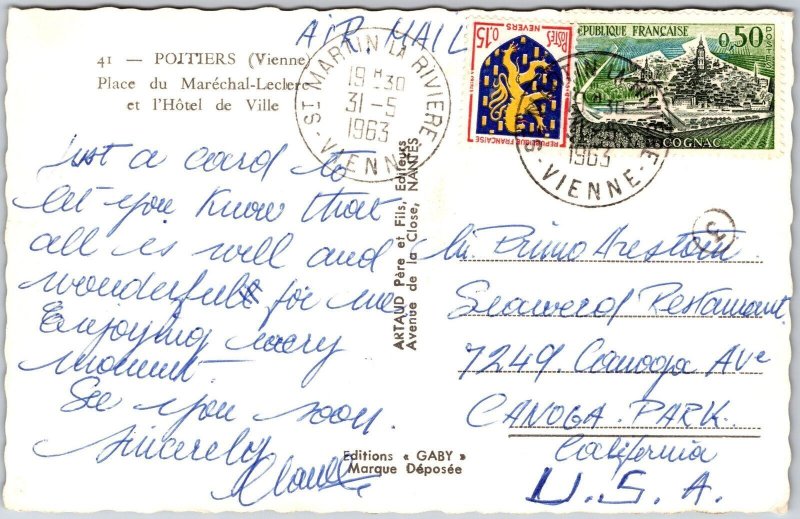 AIR MAIL
41 — POITIERS (Vienne)
Place du Maréchal-Leclerc
et l'Hôtel de Ville
ST MARTIN LA RIVIERE
19 H 30
31-5
1963
VIENNE
0.15
POSTES
NEVERS
REPUBLIQUE FRANÇAISE
REPUBLIQUE FRANÇAISE
0,50
POSTES
COGNAC
1963
VIENNE
Just a card to
let you know that
all is well and
wonderful for me
Enjoying every
moment-
See you soon.
Sincerely
ARTAUD Père et Fils, Editeurs
Avenue de la Close, NANTES
Editions « GABY »
Marque Déposée
3
Primo
Seaweed Restaurant
7249. Canoga Ave
CANOGA. PARK.
California
U.S.A.